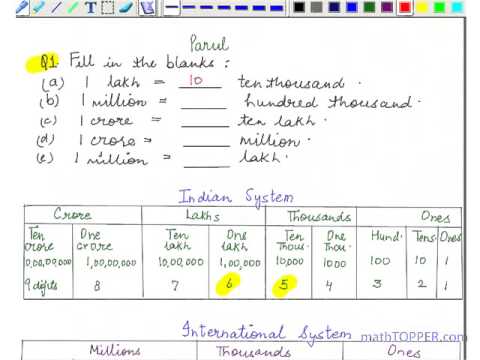 Parul
Q1. Fill in the blanks :
(a) 1 lakh = 10 ten thousand.
(b) 1 million = ____ hundred thousand.
(c) 1 crore = ____ ten lakh.
(d) 1 crore = ____ million.
(e) 1 million = ____ lakh.
Indian System
Crore Lakhs Thousands Ones
Ten crore One crore Ten lakh One lakh Ten Thou. One Thou. Hund. Tens Ones
0,00,00,000 1,00,00,000 10,00,000 1,00,000 10,000 1000 100 10 1
9 digits 8 7 6 5 4 3 2 1
International System
mathTOPPER.com
Millions Thousands Ones